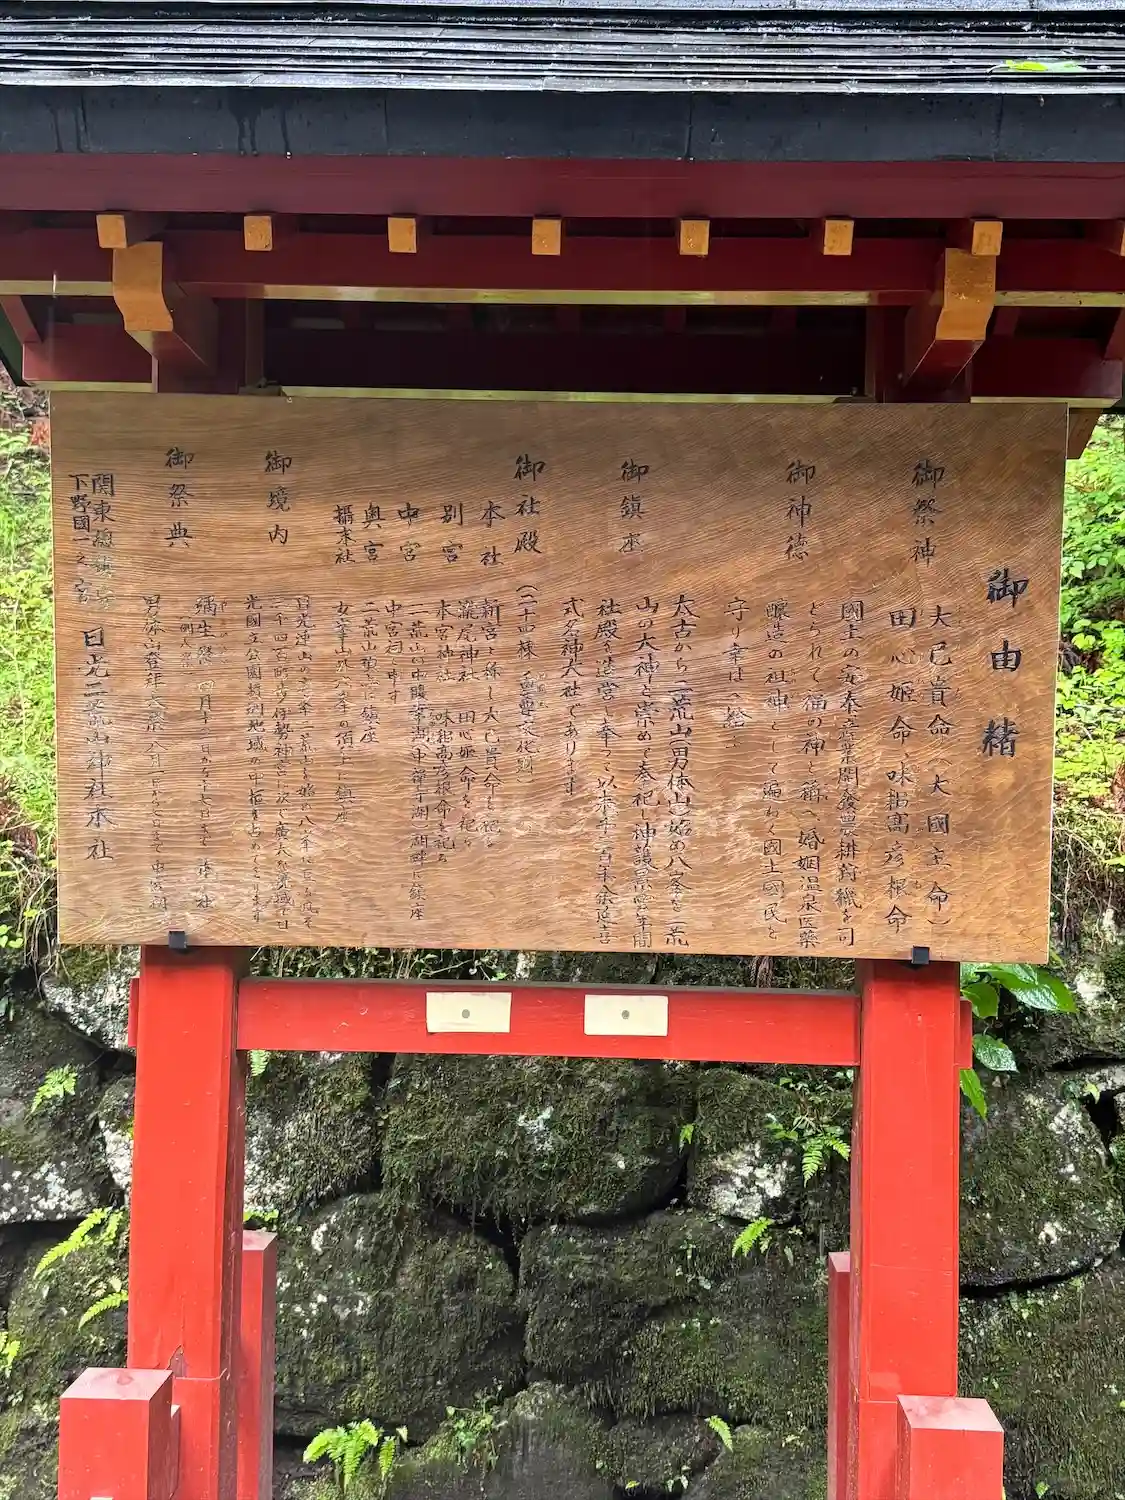 御由緒
御祭神
大己貴命（大國主命）
田心姫命 味耜高彦根命
御神徳
國土の安泰産業開發農耕狩獵を司
どられて福の神と稱へ婚姻温泉医藥
醸造の祖神として遍ねく國土國民を
守り幸はへ給ふ
御鎮座
太古から二荒山（男体山）始め八峯を二荒
山の大神と崇めて奉祀し神護景雲年間
社殿を造営し奉って以来千二百年餘延喜
式名神大社であります
御社殿
（二十四棟 重要文化財）
本社
新宮と稱し大己貴命を祀る
別宮
瀧尾神社 田心姫命を祀る
本宮神社 味耜高彦根命を祀る
中宮
二荒山中腹 中禅寺湖 湖畔に鎮座
中宮祠と申す
奥宮
二荒山頂上に鎮座
攝末社
女峯山外六峯の頂上に鎮座
御境内
日光連山の 二荒山を始め八峯に
三千四百町歩 伊勢神宮に次ぐ廣大な霊域で日
光國立公園特別地域の中枢を占めてをります
御祭典
彌生祭（例大祭）四月十三日から十七日まで 本社
男体山登拝大祭 八月一日から七日まで 中宮祠
関東總鎮守
下野國一之宮
日光二荒山神社本社